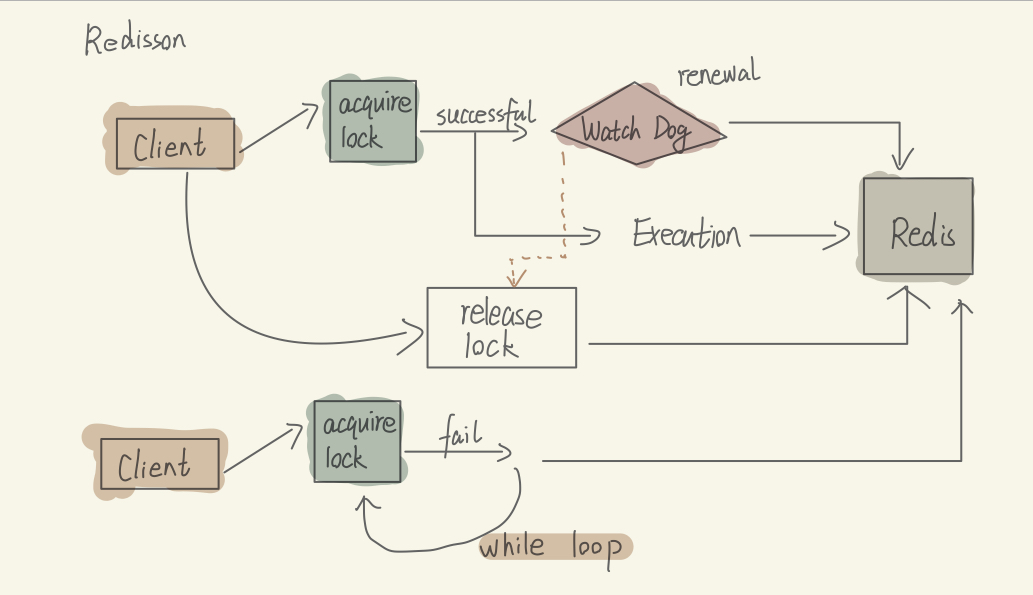 Redisson
renewal
Client
acquire
lock
successful
Watch Dog
Execution
Redis
release
lock
Client
acquire
lock
fail
while loop